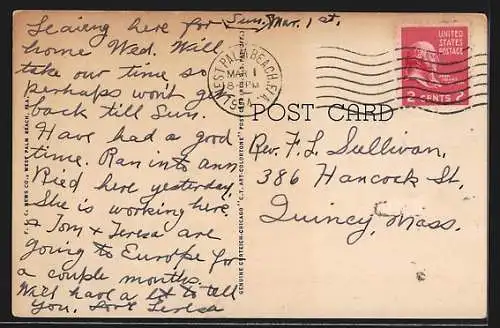 Leaving here for Sun. Mar. 1st.
home Wed. Will
take our time so
perhaps won't get
back till Sun.
Have had a good
time. Ran into Ann
Ried here yesterday.
She is working here.
& Tom & Teresa are
going to Europe for
a couple months.
Will have a lot to tell
you. Love Teresa
WEST PALM BEACH, FLA.
MAR 1
8 PM
UNITED STATES
POSTAGE
2 CENTS 2
POST CARD
Rev. F. L. Sullivan,
386 Hancock St,
Quincy, Mass.
NEWS CO., WEST PALM BEACH, FLA.
GENUINE CURTEICH-CHICAGO "C.T. ART-COLORTONE" POST CARD